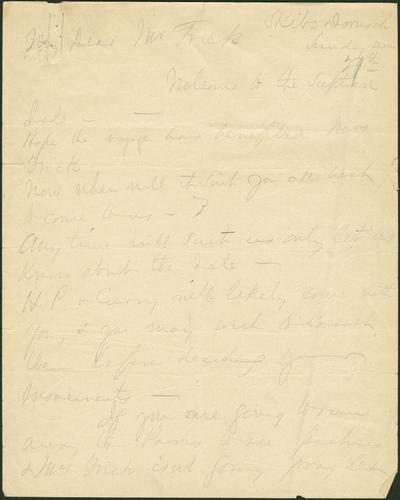 Skibo Dornoch
Sunday
My Dear Mr Frick
Welcome to the Sceptred
Isle —
Hope the voyage has benefited Mrs
Frick.
Now when will it suit you all best
to come to us — ?
Any time will suit us only let us
Know about the date —
H.P. & Curry will likely come with
you, & you may wish to consult
them before deciding your
movements —
If you are going to run
away to Paris to see fashions
& Mrs Frick isn't going pray let